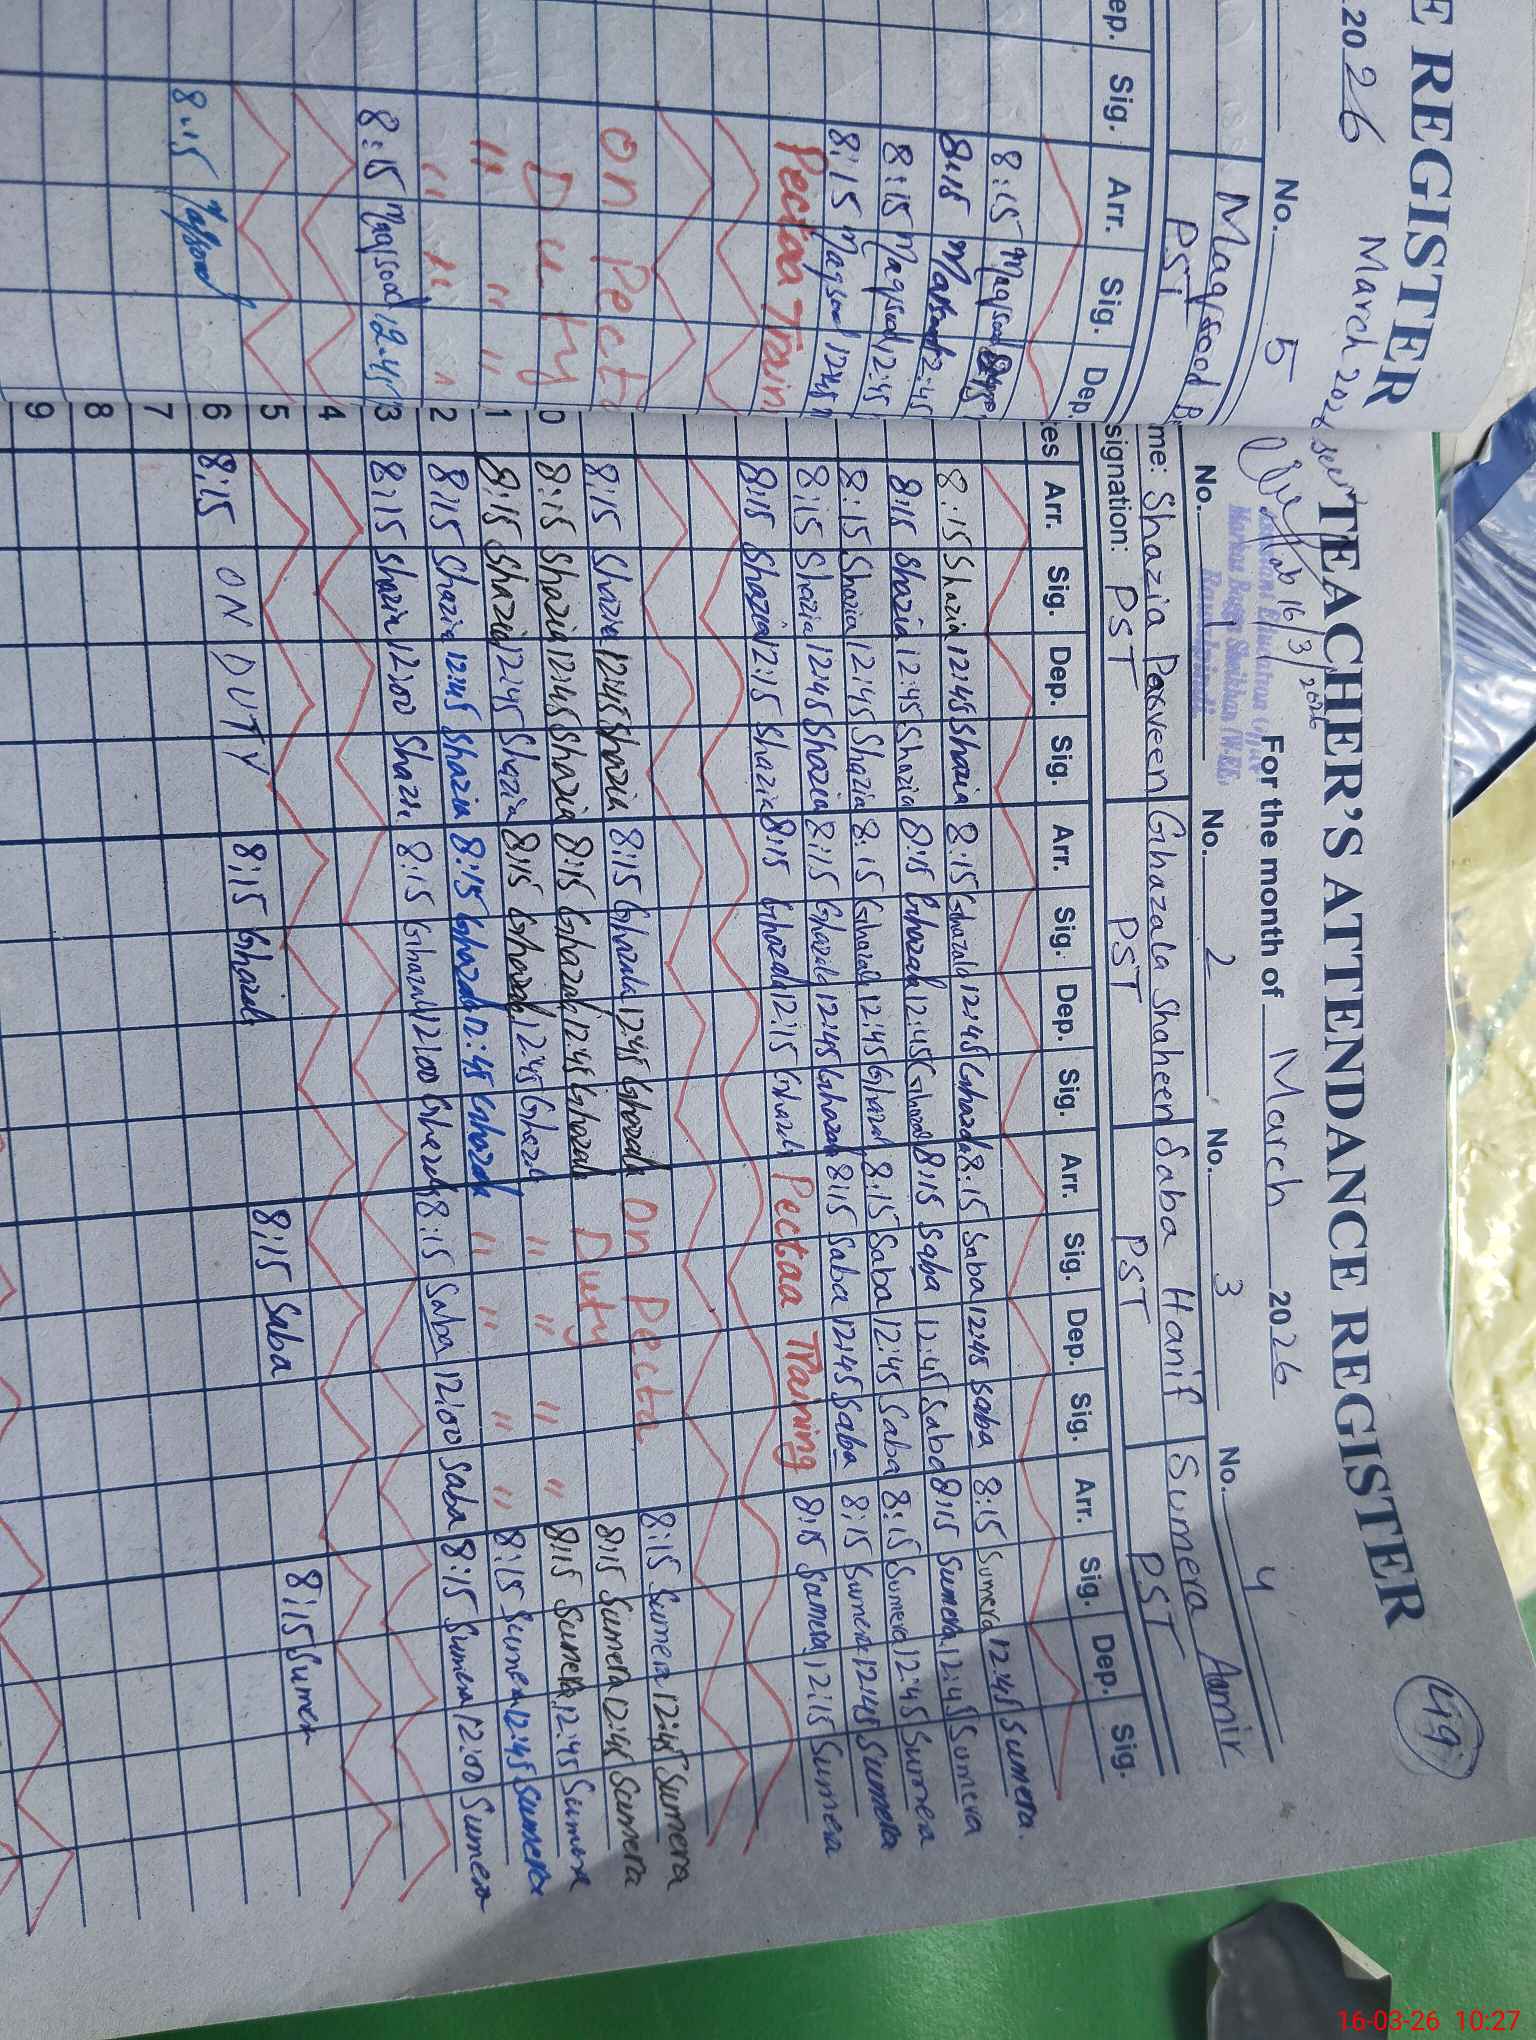 TEACHER'S ATTENDANCE REGISTER
49
For the month of March 2026
No. 1 No. 2 No. 3 No. 4
me: Shazia Parveen Ghazala Shaheen Saba Hanif Sumera Aamir
signation: PST PST PST PST
es Arr. Sig. Dep. Sig. Arr. Sig. Dep. Sig. Arr. Sig. Dep. Sig. Arr. Sig. Dep. Sig.
8:15 Shazia 12:45 Shazia 8:15 Ghazala 12:45 Ghazala 8:15 Saba 12:45 Saba 8:15 Sumera 12:45 Sumera.
8:15 Shazia 12:45 Shazia 8:15 Ghazala 12:45 Ghazal 8:15 Saba 12:45 Saba 8:15 Sumera 12:45 Sumera
8:15 Shazia 12:45 Shazia 8:15 Ghazala 12:45 Ghazal 8:15 Saba 12:45 Saba 8:15 Sumera 12:45 Sumera
8:15 Shazia 12:45 Shazia 8:15 Ghazala 12:45 Ghazala 8:15 Saba 12:45 Saba 8:15 Sumera 12:45 Sumera
8:15 Shazia 12:15 Shazia 8:15 Ghazala 12:15 Ghazala Pectaa Training 8:15 Samera 12:15 Sumera
8:15 Shazia 12:45 Shazia 8:15 Ghazala 12:45 Ghazala On Pecta 8:15 Sumera 12:45 Sumera
0 8:15 Shazia 12:45 Shazia 8:15 Ghazal 12:45 Ghazal Duty 8:15 Sumera 12:45 Sumera
1 8:15 Shazia 12:45 Shazia 8:15 Ghazala 12:45 Ghazal " " " " 8:15 Sumera 12:45 Sumera
2 8:15 Shazia 12:45 Shazia 8:15 Ghazal 12:45 Ghazala " " " " 8:15 Sumera 12:45 Sumera
3 8:15 Shazia 12:00 Shazia 8:15 Ghazal 12:00 Ghazala 8:15 Saba 12:00 Saba 8:15 Sumera 12:00 Sumera
4
5
6 8:15 ON DUTY 8:15 Ghazala 8:15 Saba 8:15 Sumera
7
8
9
E REGISTER
March 2026 seen
16/3/2026
Markaz
Rawalpindi
.2026
No. 5
Maqsood B
PST
ep. Sig. Arr. Sig. Dep
8:15 Maqsood
8:15 12:45
8:15 Maqsood 12:45
8:15 Maqsood 12:45
Pectaa Train
On Pect
Duty
" " "
" " "
8:15 Maqsood 12:45
8:15 Maqsood
16-03-26 10:27